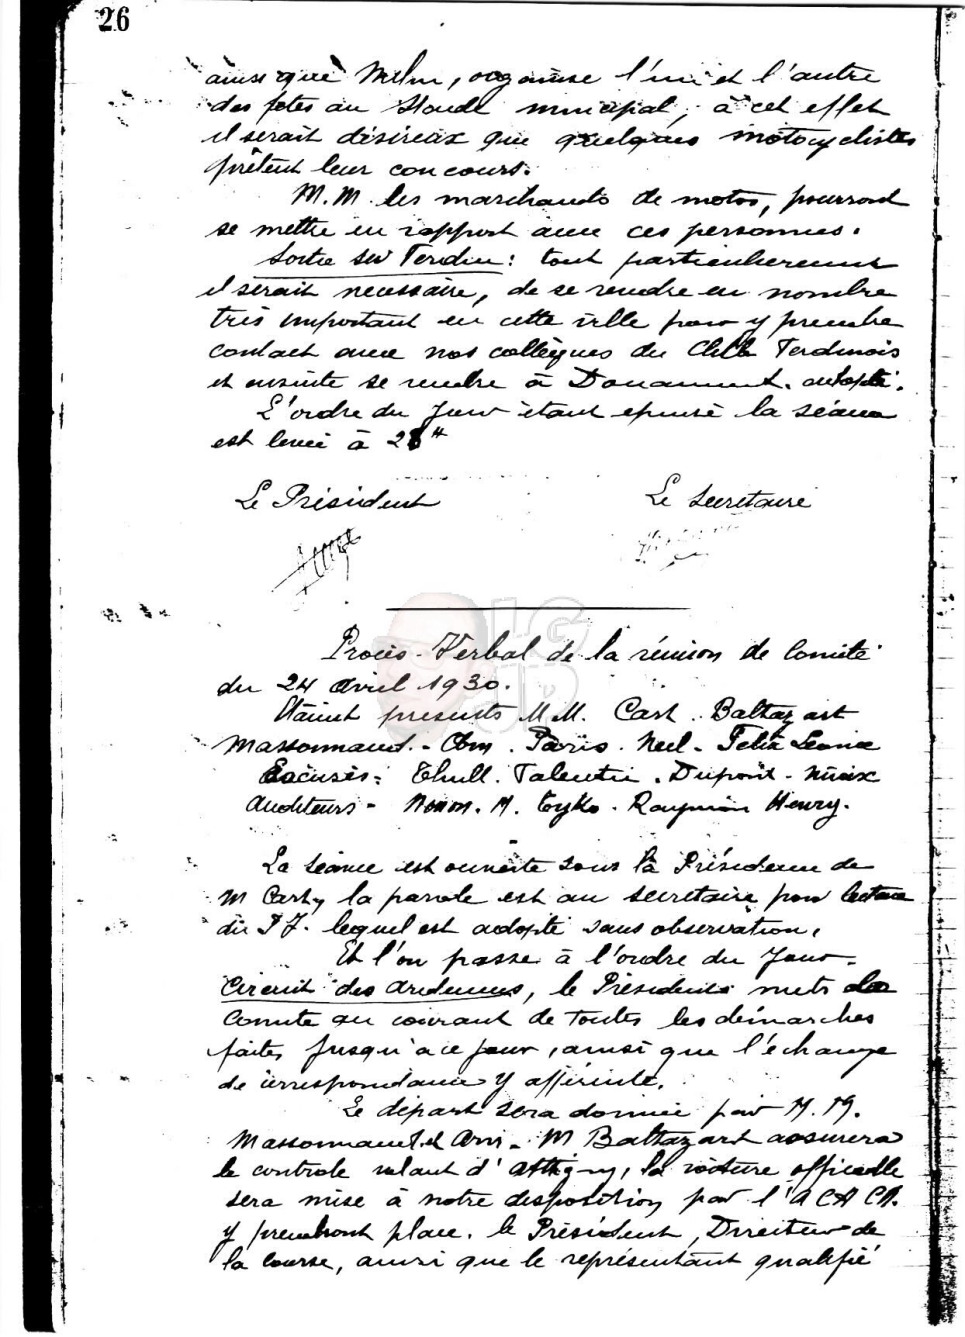 26
ainsi que Melm, organise l'un et l'autre
des fetes au Stade municipal, à cet effet
il serait désireux que quelques motocyclistes
prêtent leur concours.
M.M. les marchands de motos, pourront
se mettre en rapport avec ces personnes.
Sortie sur Verdun: tout particulierement
il serait necessaire, de se rendre en nombre
très important en cette ville pour y prendre
contact avec nos collègues du Club Verdunois
et ensuite se rendre à Douaumont. adopté.
L'ordre du Jour étant epuisé la séance
est levée à 23 H
Le Président Le Secretaire
Procès-Verbal de la réunion de Comité
du 24 Avril 1930.
Etaient presents M.M. Cart. Baltazart
Massonnaud - Paris. Neel - Felix Leonce
Excusés: Thull. Valentin. Dupont -
Auditeurs - M. Raymon Henry.
La séance est ouverte sous la Présidence de
M Cart, la parole est au secretaire pour lecture
du P.V. lequel est adopté sans observation.
Et l'on passe à l'ordre du Jour.
Circuit des Ardennes, le Président mets le
Comité au courant de toutes les démarches
faites jusqu'à ce jour, ainsi que l'échange
de correspondance y afférente.
Le départ sera donnée par M.M.
Massonnaud et - M Baltazart assurera
le controle volant d'Attigny, la voiture officielle
sera mise à notre disposition par l'A C A C A.
y prendront place. le Président, Directeur de
la course, ainsi que le représentant qualifié